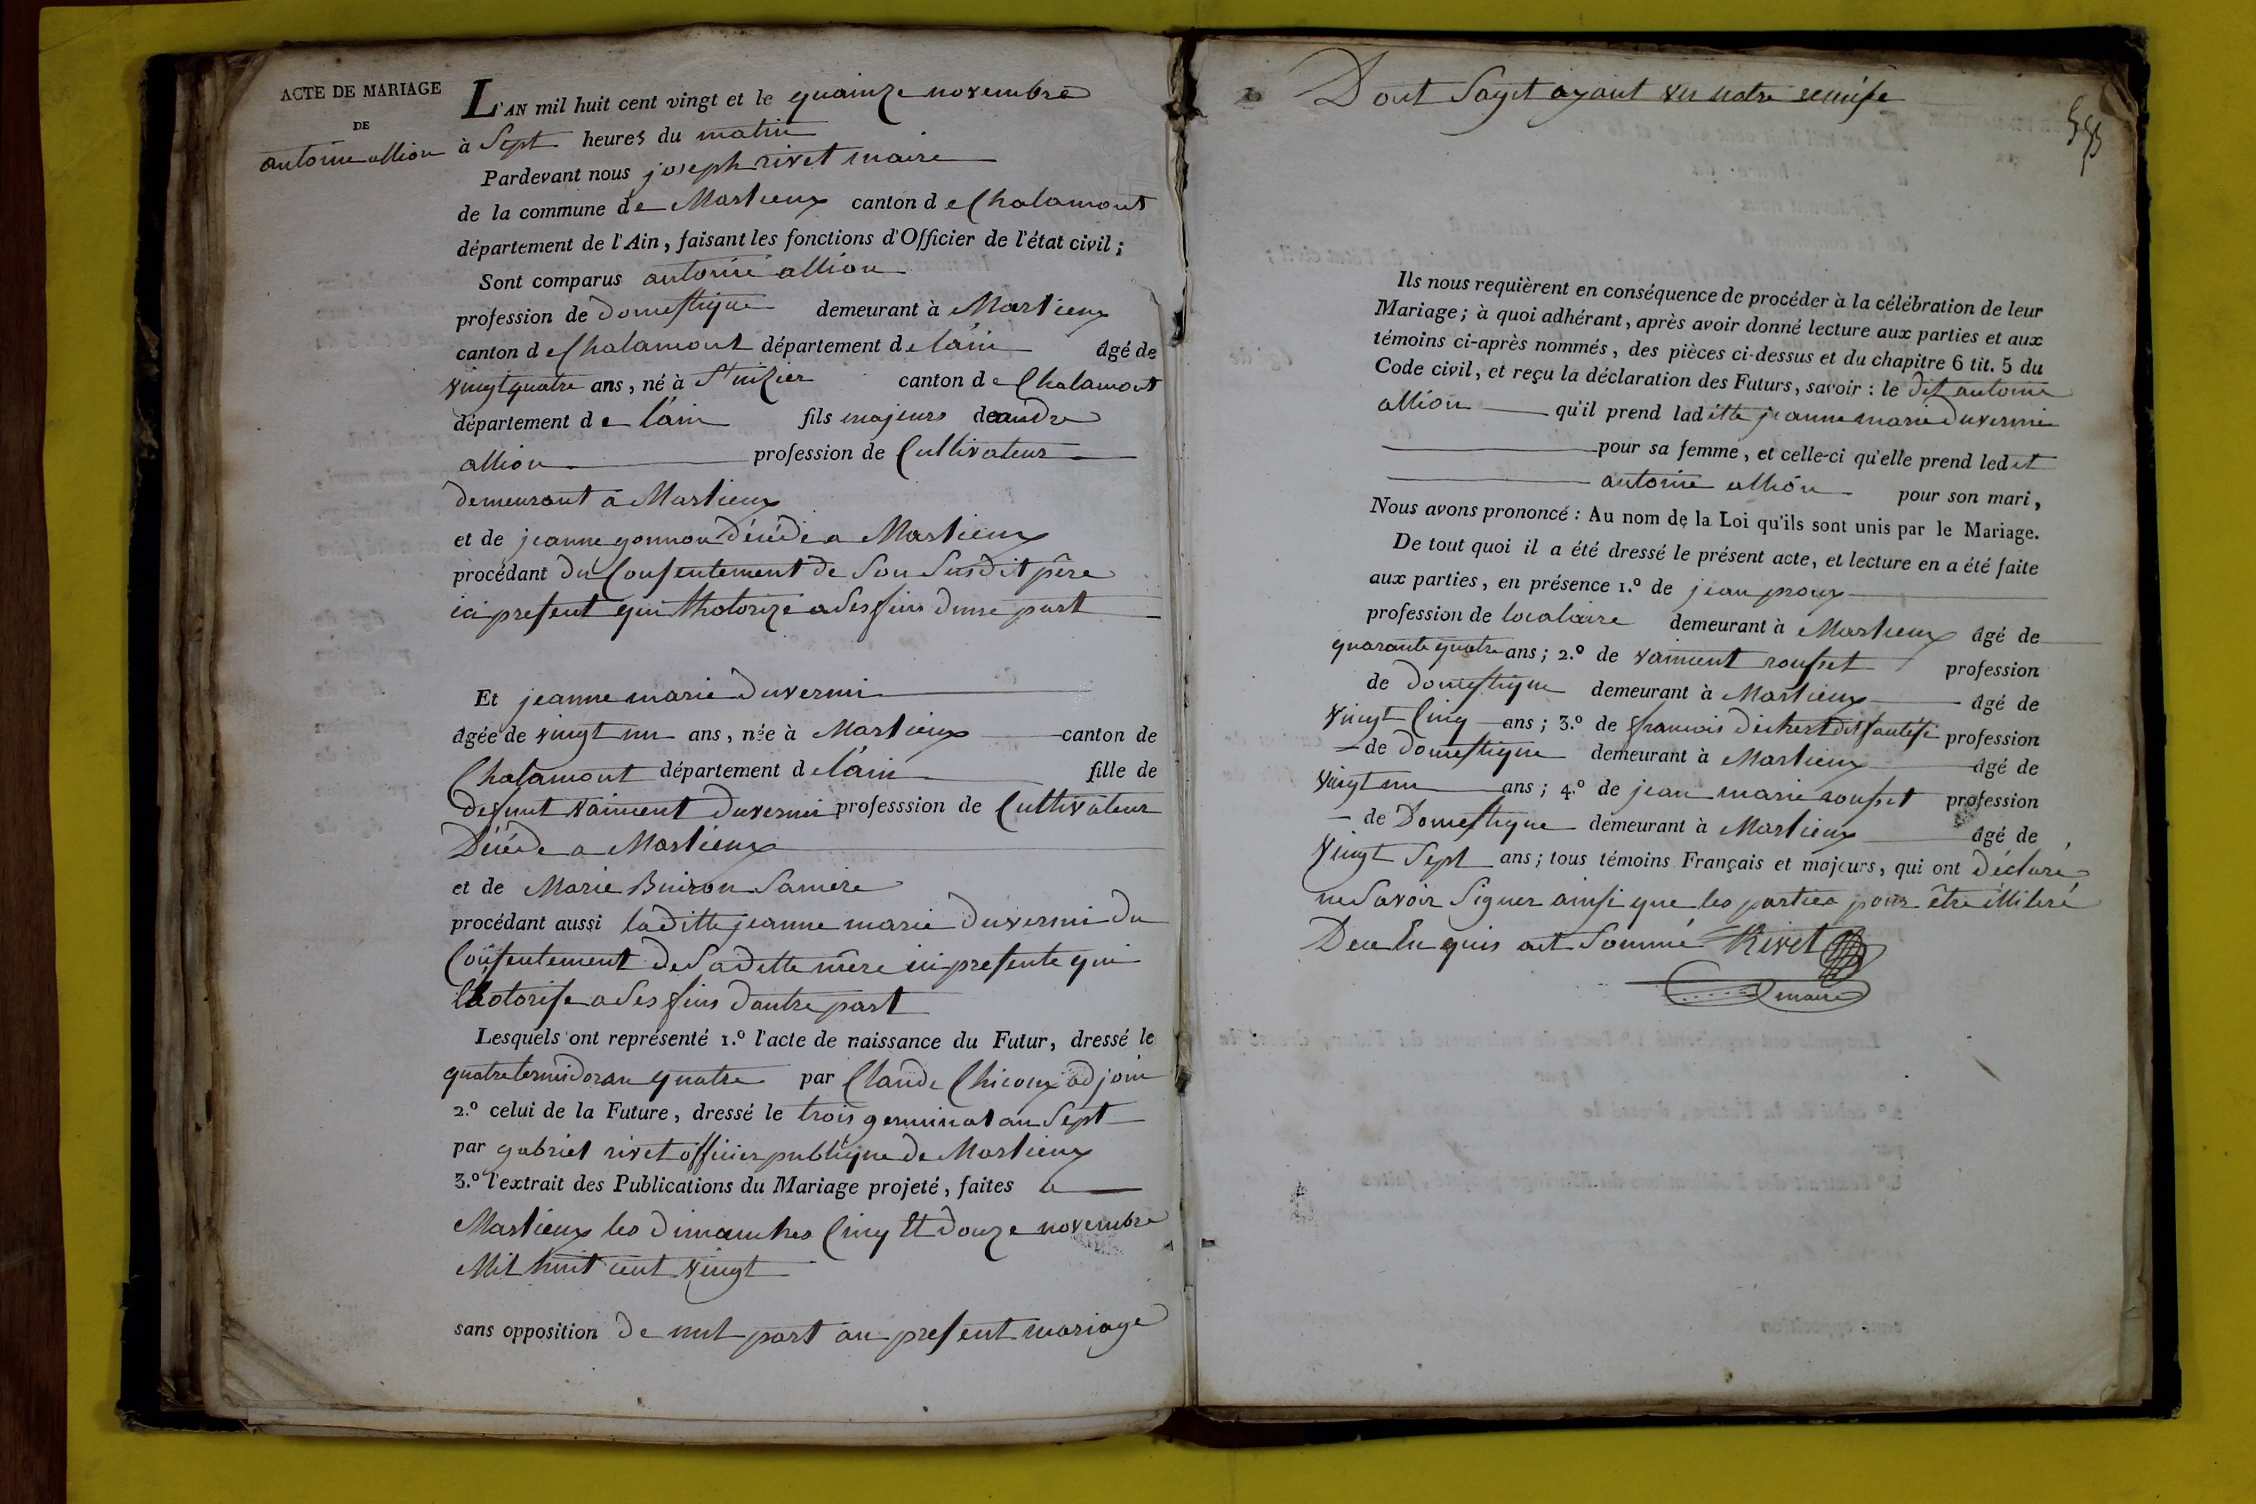 ACTE DE MARIAGE
DE
antoine allion
L'AN mil huit cent vingt et le quainze novembre
à Sept heures du matin
Pardevant nous joseph rivet maire
de la commune de Marlieux canton de Chalamont
département de l'Ain, faisant les fonctions d'Officier de l'état civil;
Sont comparus antoine allion
profession de domestique demeurant à Marlieux
canton de Chalamont département de lain âgé de
vingt quatre ans, né à St nizier canton de Chalamont
département de lain fils majeurs de andre
allion profession de Cultivateur
demeurant a Marlieux
et de jeanne gonnon décédé a Marlieux
procédant du Consentement de Son Susdit père
ici present qui lhotorize a Ses fins dune part
Et jeanne marie duvernai
âgée de vingt un ans, née à Marlieux canton de
Chalamont département de lain fille de
defunt vaincent duvernai professsion de Cultivateur
Décéde a Marlieux
et de Marie Buiron Samère
procédant aussi laditte jeanne marie duvernai du
Consentement de Saditte mère ici presente qui
lhotorise a Ses fins dautre part
Lesquels ont représenté 1.º l'acte de naissance du Futur, dressé le
quatre termidor an quatre par Claude Chicoux adjoin
2.º celui de la Future, dressé le trois germinal an Sept
par gabriel rivet officier publique de Marlieux
3.º l'extrait des Publications du Mariage projeté, faites a
Marlieux les dimanches Cinq Et douze novembre
Mil huit cent vingt
sans opposition de nul part au present mariage
Dont Sagit ayant vu notre remise
Ils nous requièrent en conséquence de procéder à la célébration de leur
Mariage; à quoi adhérant, après avoir donné lecture aux parties et aux
témoins ci-après nommés, des pièces ci-dessus et du chapitre 6 tit. 5 du
Code civil, et reçu la déclaration des Futurs, savoir : le dit antoine
allion qu'il prend laditte jeanne marie duvernai
pour sa femme, et celle-ci qu'elle prend ledit
antoine allion pour son mari,
Nous avons prononcé : Au nom de la Loi qu'ils sont unis par le Mariage.
De tout quoi il a été dressé le présent acte, et lecture en a été faite
aux parties, en présence 1.º de jean proux
profession de localaire demeurant à Marlieux âgé de
quarante quatre ans; 2.º de vaincent rousset profession
de domestique demeurant à Marlieux âgé de
vingt Cinq ans; 3.º de francois profession
de domestique demeurant à Marlieux âgé de
vingt un ans; 4.º de jean marie rousset profession
de Domestique demeurant à Marlieux âgé de
Vingt Sept ans; tous témoins Français et majeurs, qui ont déclaré
ne Savoir Signer ainsi que les parties pour être illiteré
De ce Enquis ont Sommé Rivet
maire